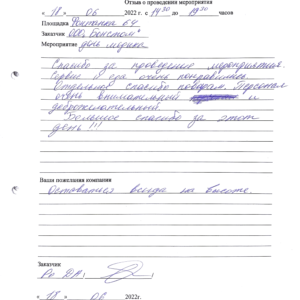 Отзыв о проведении мероприятия
« 18 » 06 2022 г. с 14 30 до 19 30 часов
Площадка Фонтанка 64
Заказчик ООО
Мероприятие день медика
Спасибо за проведение мероприятия.
Сервис и еда очень понравились.
Отдельное спасибо поварам. Персонал
очень внимательный и
доброжелательный.
Большое спасибо за этот
день !!!
Ваши пожелания компании
Оставаться всегда на высоте.
Заказчик
« 18 » 06 2022г.